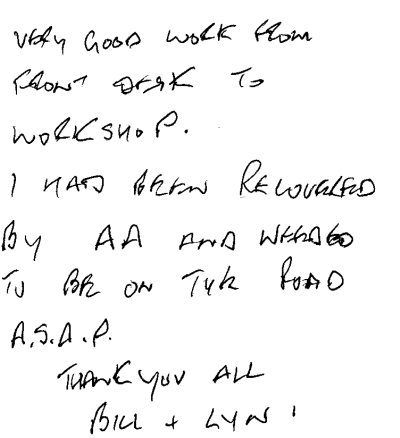 VERY GOOD WORK FROM
FRONT DESK TO
WORKSHOP.
I HAD BEEN RECOVERED
BY AA AND NEEDED
TO BE ON THE ROAD
A.S.A.P.
THANK YOU ALL
BILL + LYN